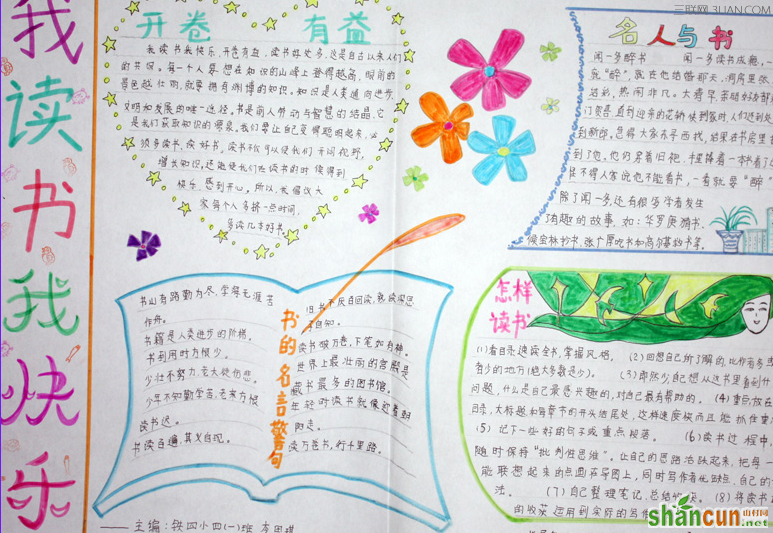 我读书我快乐
三联网 3LIAN.COM
开卷 有益
我读书我快乐,开卷有益,读书好处多,这是自古以来人们
的共识。每一个人要想在知识的山峰上登得越高,眼前的
景色越壮观,就要拥有渊博的知识。知识是人类通向进步
文明和发展的唯一途径。书是前人劳动与智慧的结晶,它
是我们获取知识的源泉。我们要让自己变得聪明起来,必
须多读书,读好书。读书不仅可以使我们开阔视野,
增长知识,还能使我们在读书的时候得到
快乐,感到开心。所以,长假放大
家每个人多挤一点时间,
多读几本好书。
名人与书
闻一多醉书 闻一多读书成瘾,一
就"醉",就在他结婚那天,洞房里张
结彩,热闹非凡。大清早,亲朋好友都
们贺喜,直到迎亲的花轿快到家时,人们还到处
到新郎。急得大家东寻西找,结果在书房里
到了他。他仍穿着旧袍,手里捧着一本书看
不得人家说他不能看书,一看就要"醉"
除了闻一多,还有很多学者发生
了有趣的故事,如:华罗庚猜书、
侯宝林抄书、张广厚吃书和高尔基救书等。
书的名言警句
书山有路勤为径,学海无涯苦
作舟。
书籍是人类进步的阶梯。
书到用时方恨少。
少壮不努力,老大徒伤悲。
少年不知勤学苦,老来方恨
读书迟。
书读百遍,其义自现。
旧书不厌百回读,熟读深思
子自知。
读书破万卷,下笔如有神。
世界上最壮丽的宫殿是
藏书最多的图书馆。
年轻时读书就像迎着朝
阳走。
读万卷书,行千里路。
怎样
读书
(1)看目录,速读全书,掌握风格。 (2)回想自己所了解的,比作者多
者少的地方(绝大多数是少)。 (3)即然少,自己想从这书里看到什
问题,什么是自己最感兴趣的,对自己最有帮助的。 (4)重点放在
回读,大标题和每章节的开头结尾处,这样速度较而且能抓住重
(5) 记下一些好的句子或重点段落。 (6)读书过程中
随时保持"批判性思维"。让自己的思路活跃起来,把每一
能联想起来的点画在导图上,同时写作者优缺点,自己的
法。 (7)自己整理笔记,总结收获。 (8)将读书
的收获运用到实际的写作
——主编:铁四小四(一)班
shancun
山村网
.net